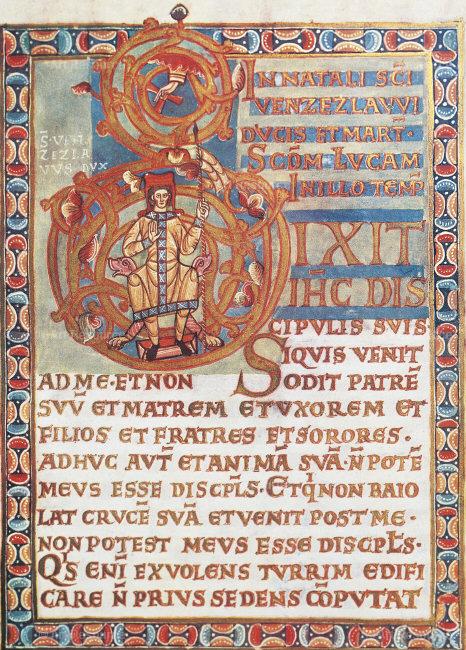 IN NATALI SC̄I
VENZEZLAVVI
DVCIS ET MART·
SC̄DM̄· LVCAM
IN ILLO TEMP̄
S̄· VEN
ZEZLA
VVS DVX
DIXIT
IH̄C DIS
CIPVLIS SVIS
SIQVIS VENIT
AD ME· ET NON ODIT PATRĒ
SVV̄ ET MATREM ET VXOREM ET
FILIOS ET FRATRES ET SORORES·
ADHVC AVT̄ ET ANIMĀ SVĀ· N̄ POTĒ
MEVS ESSE DISCPL̄S· ET Q̄I NON BAIO
LAT CRVCĒ SVĀ ET VENIT POST ME·
NON POTEST MEVS ESSE DISCPL̄S·
Q̄S ENĪ EX VOLENS TVRRIM EDIFI
CARE N̄ PRIVS SEDENS CŌPVTAT